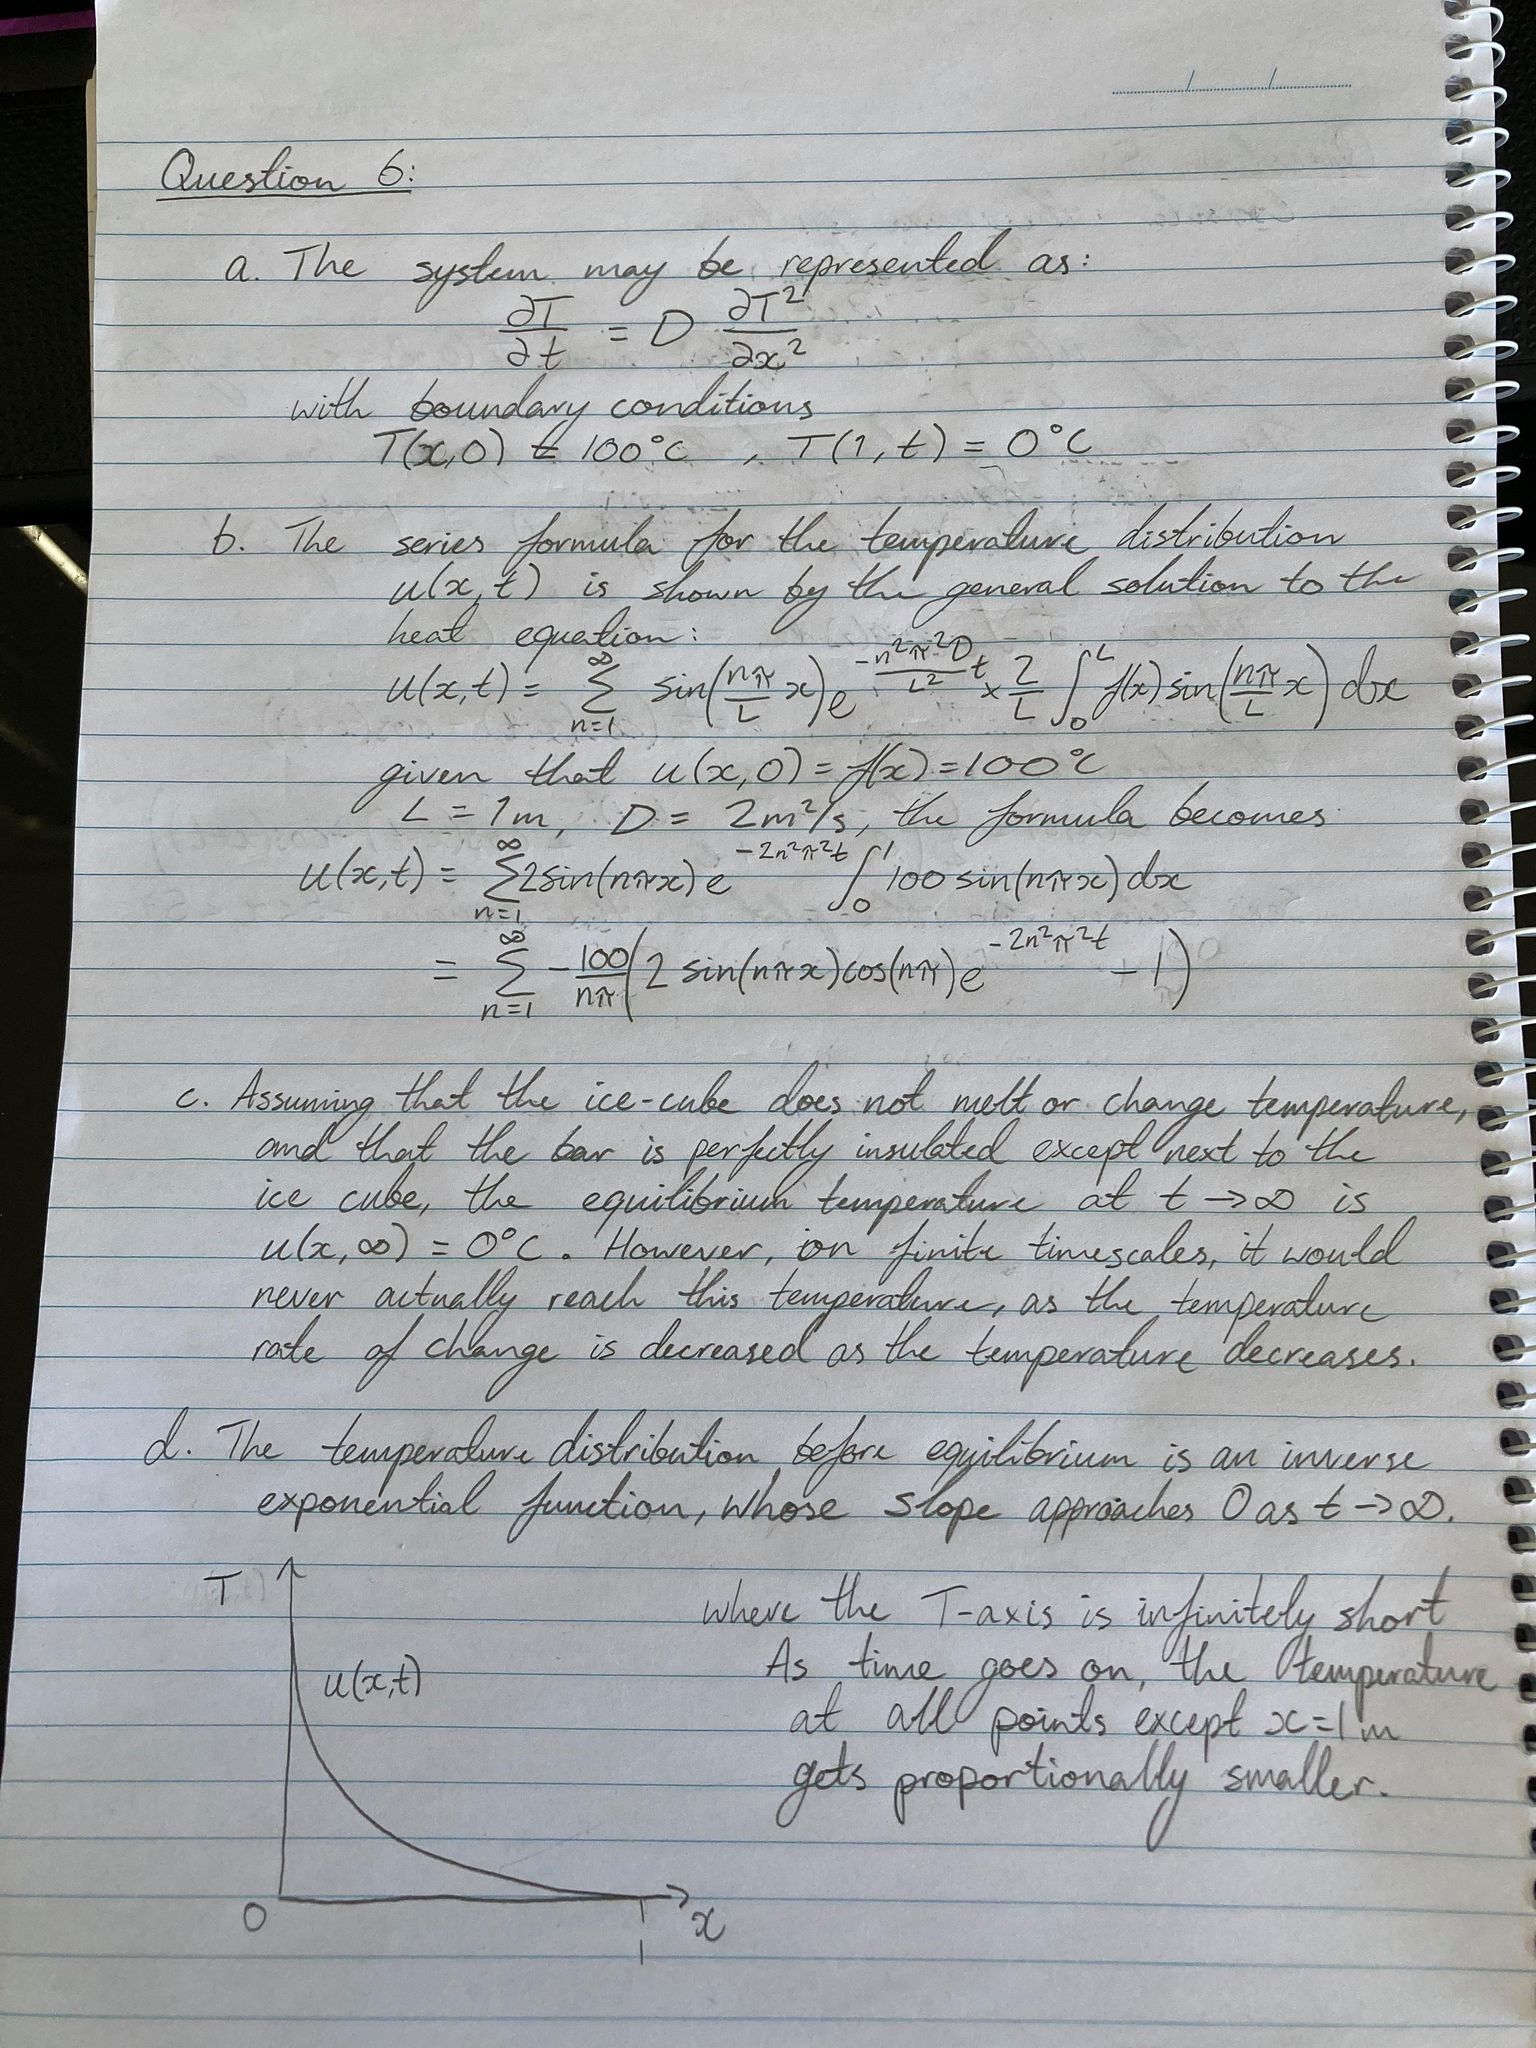 Question 6:
a. The system may be represented as:
∂T/∂t = D ∂T²/∂x²
with boundary conditions
T(x,0) = 100°C , T(1,t) = 0°C
b. The series formula for the temperature distribution
u(x,t) is shown by the general solution to the
heat equation:
u(x,t) = ∞Σn=1 sin(nπ/L x) e^(-n²π²D/L² t) × 2/L ∫₀ᴸ f(x) sin(nπ/L x) dx
given that u(x,0) = f(x) = 100°C
L = 1m, D = 2m²/s, the formula becomes
u(x,t) = ∞Σn=1 2sin(nπx) e^(-2n²π²t) ∫₀¹ 100 sin(nπx) dx
= ∞Σn=1 -100/nπ (2 sin(nπx) cos(nπ) e^(-2n²π²t) - 1)
c. Assuming that the ice-cube does not melt or change temperature,
and that the bar is perfectly insulated except next to the
ice cube, the equilibrium temperature at t → ∞ is
u(x,∞) = 0°C. However, on finite timescales, it would
never actually reach this temperature, as the temperature
rate of change is decreased as the temperature decreases.
d. The temperature distribution before equilibrium is an inverse
exponential function, whose slope approaches 0 as t → ∞.
T
u(x,t)
0
1
x
where the T-axis is infinitely short
As time goes on, the temperature
at all points except x=1m
gets proportionally smaller.